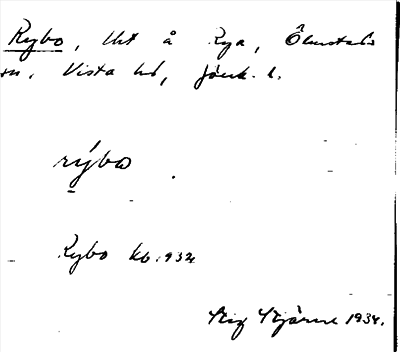 Rybo, lht å Rya, Ölmstads
sn. Vista hd, Jönk. l.
rýbo
Rybo kb. 1932
Stig Stjärne 1934.